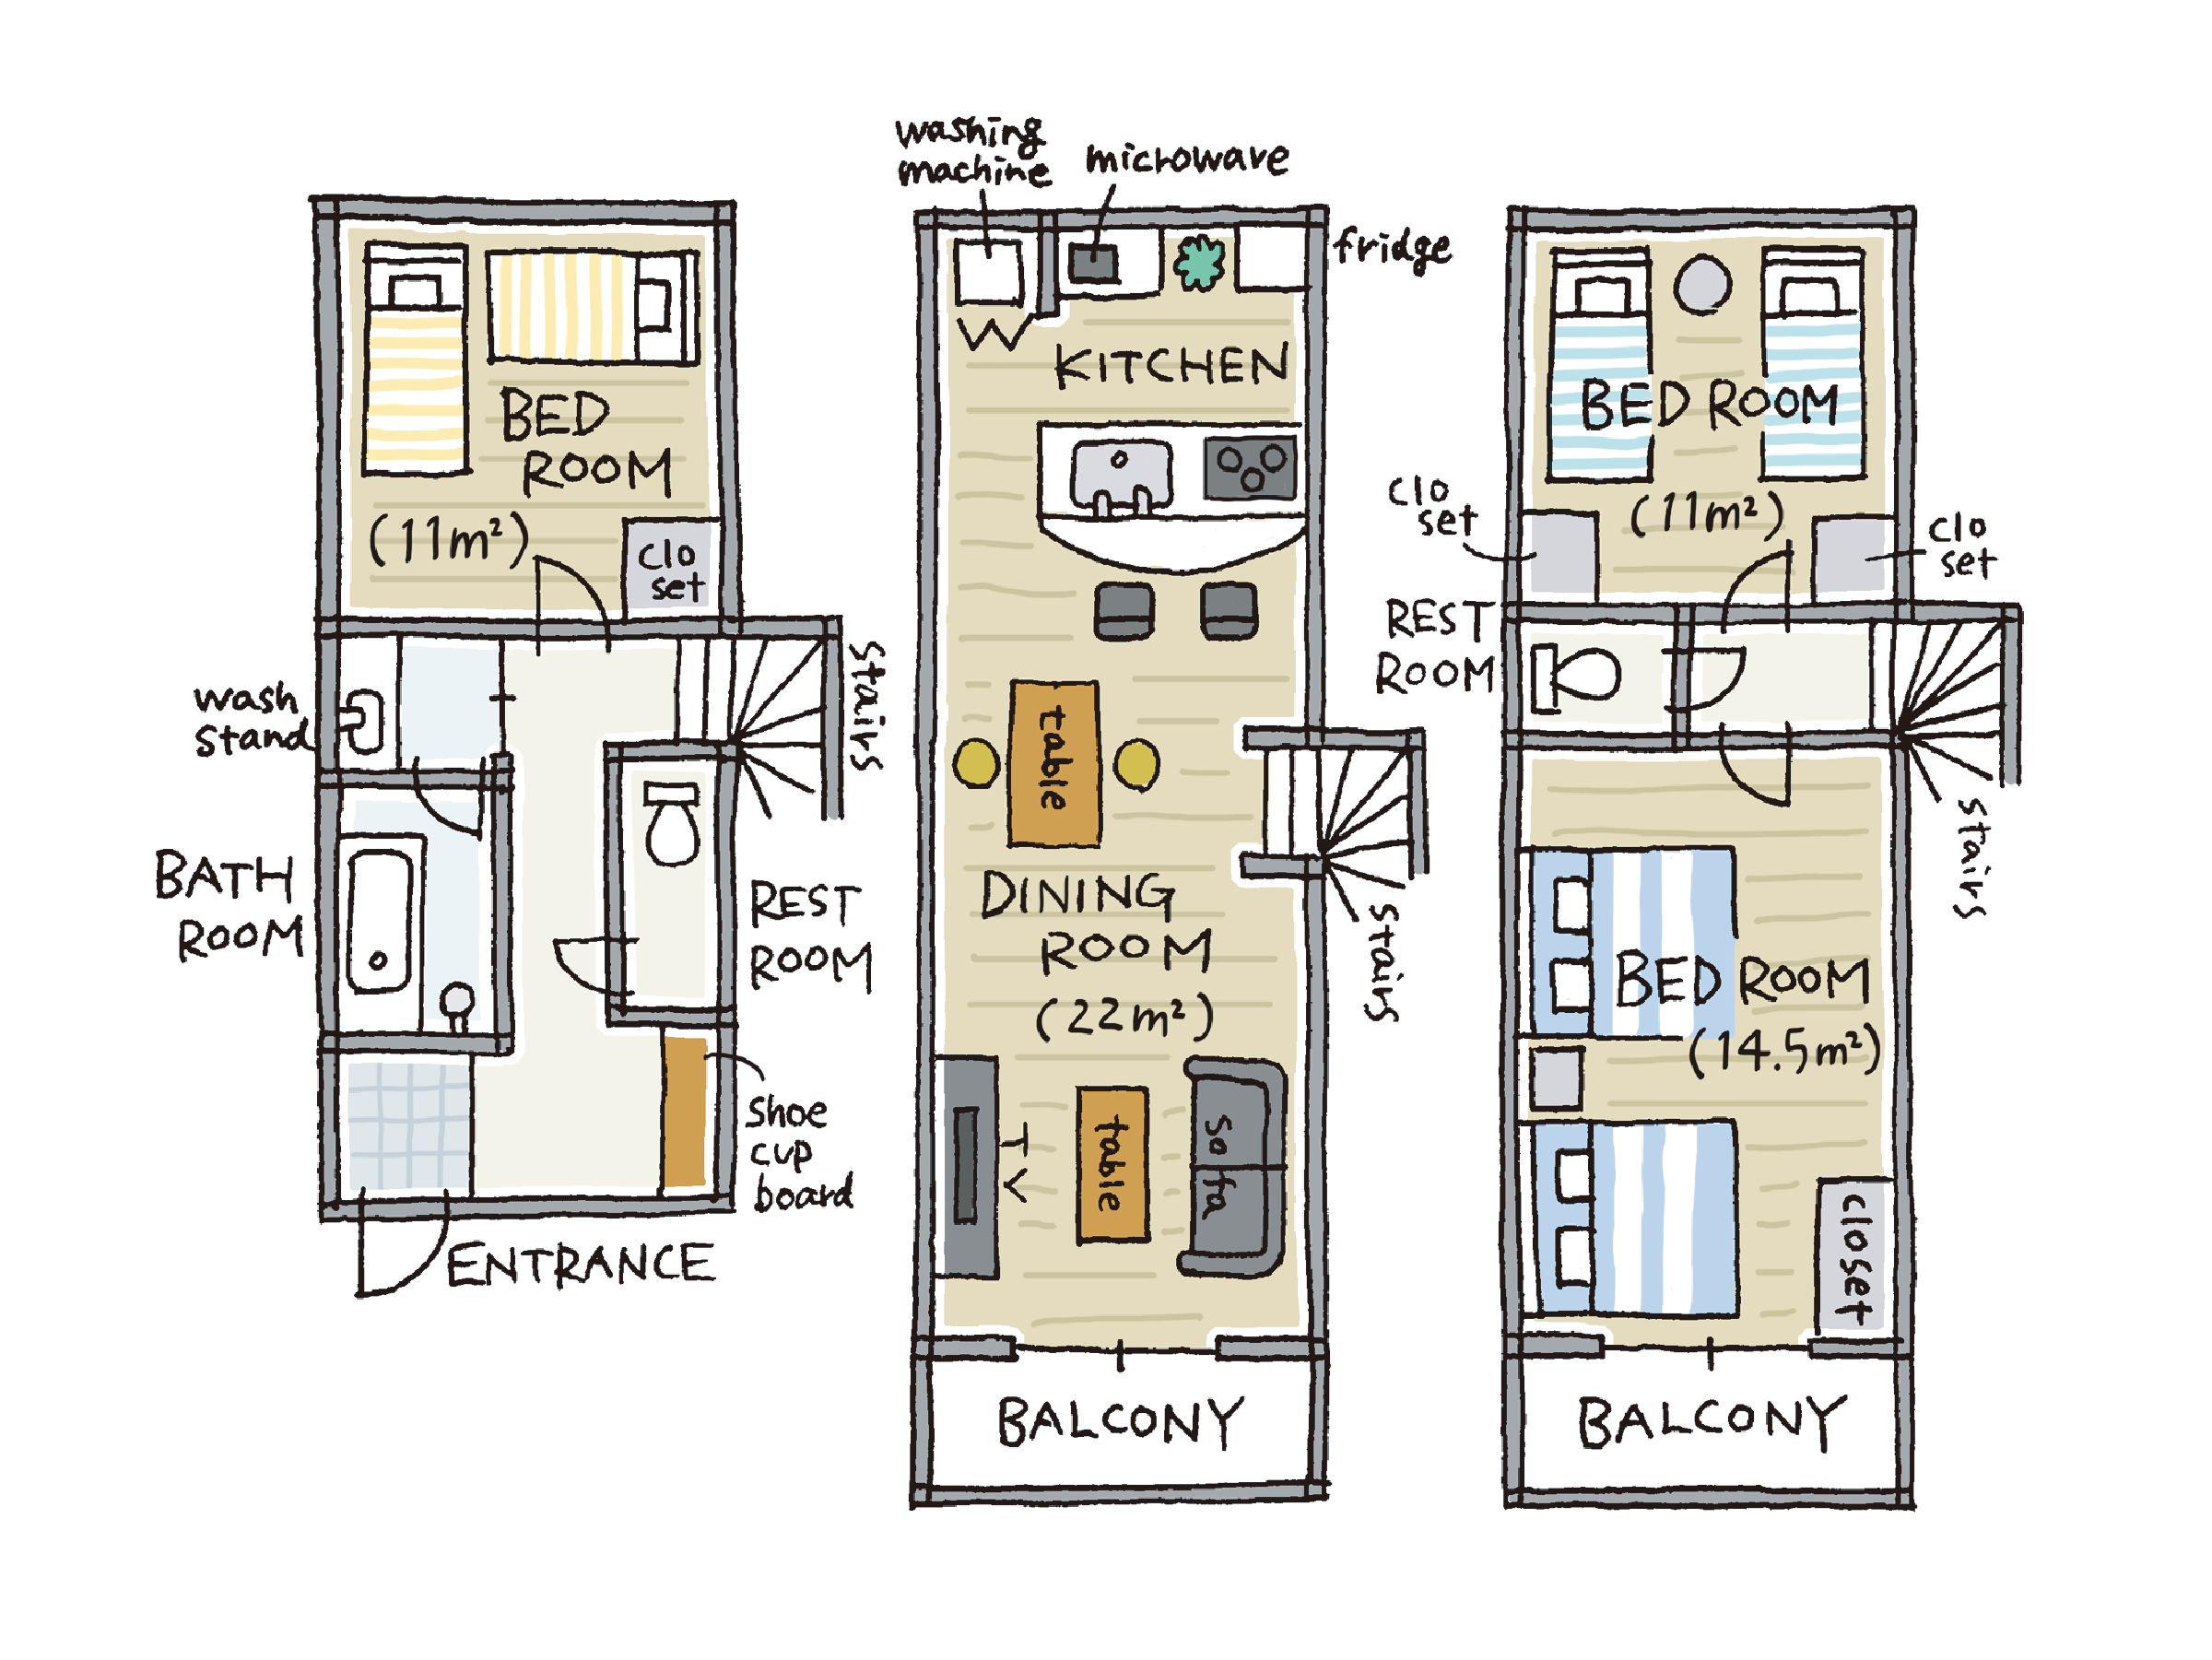 BED
ROOM
(11m²)
clo
set
stairs
wash
stand
BATH
ROOM
REST
ROOM
shoe
cup
board
ENTRANCE
washing
machine
microwave
fridge
KITCHEN
table
DINING
ROOM
(22m²)
stairs
TV
table
sofa
BALCONY
BED ROOM
(11m²)
clo
set
clo
set
REST
ROOM
stairs
BED ROOM
(14.5m²)
closet
BALCONY